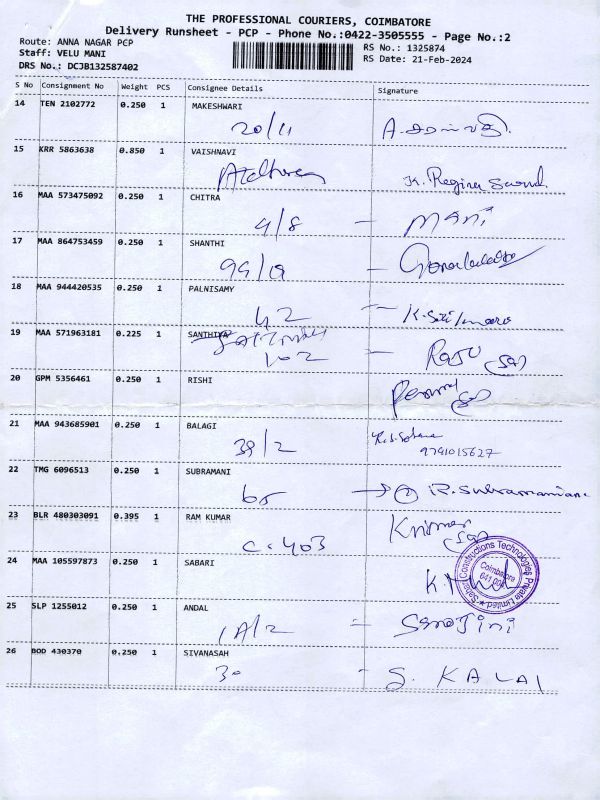 THE PROFESSIONAL COURIERS, COIMBATORE
Delivery Runsheet - PCP - Phone No.:0422-3505555 - Page No.:2
Route: ANNA NAGAR PCP
RS No.: 1325874
Staff: VELU MANI
RS Date: 21-Feb-2024
DRS No.: DCJB132587402
S No Consignment No Weight PCS Consignee Details Signature
14 TEN 2102772 0.250 1 MAKESHWARI
20/11
15 KRR 5863638 0.850 1 VAISHNAVI
K. Regina
16 MAA 573475092 0.250 1 CHITRA
4/8 - MANI
17 MAA 864753459 0.250 1 SHANTHI
99/19 -
18 MAA 944420535 0.250 1 PALNISAMY
42 -
19 MAA 571963181 0.225 1 SANTHIYA
102 - RAJU
20 GPM 5356461 0.250 1 RISHI
21 MAA 943685901 0.250 1 BALAGI
39/2
9791015627
22 TMG 6096513 0.250 1 SUBRAMANI
65 R. Subramaniane
23 BLR 480303091 0.395 1 RAM KUMAR
C-403
24 MAA 105597873 0.250 1 SABARI
Constructions Technologies Private Limited
Coimbatore
25 SLP 1255012 0.250 1 ANDAL
1A/2 = Sarojini
26 BOD 430370 0.250 1 SIVANASAH
30 - S. KALAI